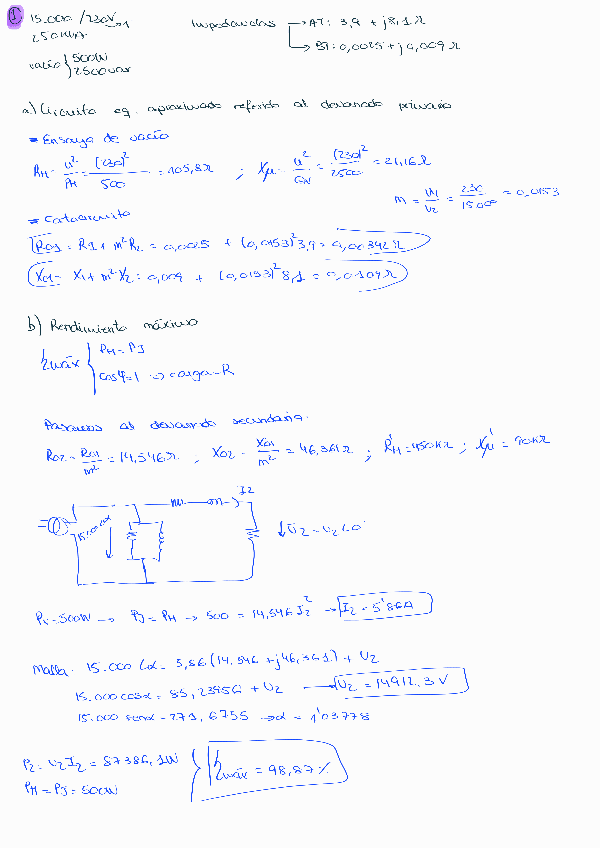 1 15.000/230V
250KVA
vacío 500W
2500var
Impedancias → AT: 3,9 + j8,1Ω
→ BT: 0,0025 + j0,009Ω
a) Circuito eq. aproximado referido al devanado primario
= Ensayo de vacío
RH = U²/PH = (230)²/500 = 105,8Ω ; Xμ = U²/QH = (230)²/2500 = 21,16Ω
m = U1/U2 = 230/15000 = 0,0153
= Cortocircuito
R01 = R1 + m²R2 = 0,0025 + (0,0153)²3,9 = 0,00342Ω
X01 = X1 + m²X2 = 0,009 + (0,0153)²8,1 = 0,0109Ω
b) Rendimiento máximo
ηmáx PH = PJ
cosφ = 1 => carga = R
Pasamos al devanado secundario.
R02 = R01/m² = 14,546Ω , X02 = X01/m² = 46,361Ω ; R'H = 450KΩ ; Xμ' = 90KΩ
I2
15.000∠α
↓U2 = U2∠0
PH = 500W → PJ = PH → 500 = 14,546 I2² → I2 = 5'86A
Malla: 15.000∠α = 5,86(14,546 + j46,361) + U2
15.000cosα = 85,23956 + U2 → U2 = 14912,3V
15.000 senα = 271,6755 → α = 1'03778
P2 = U2 I2 = 87386,1W
PH = PJ = 500W
ηmáx = 98,87%